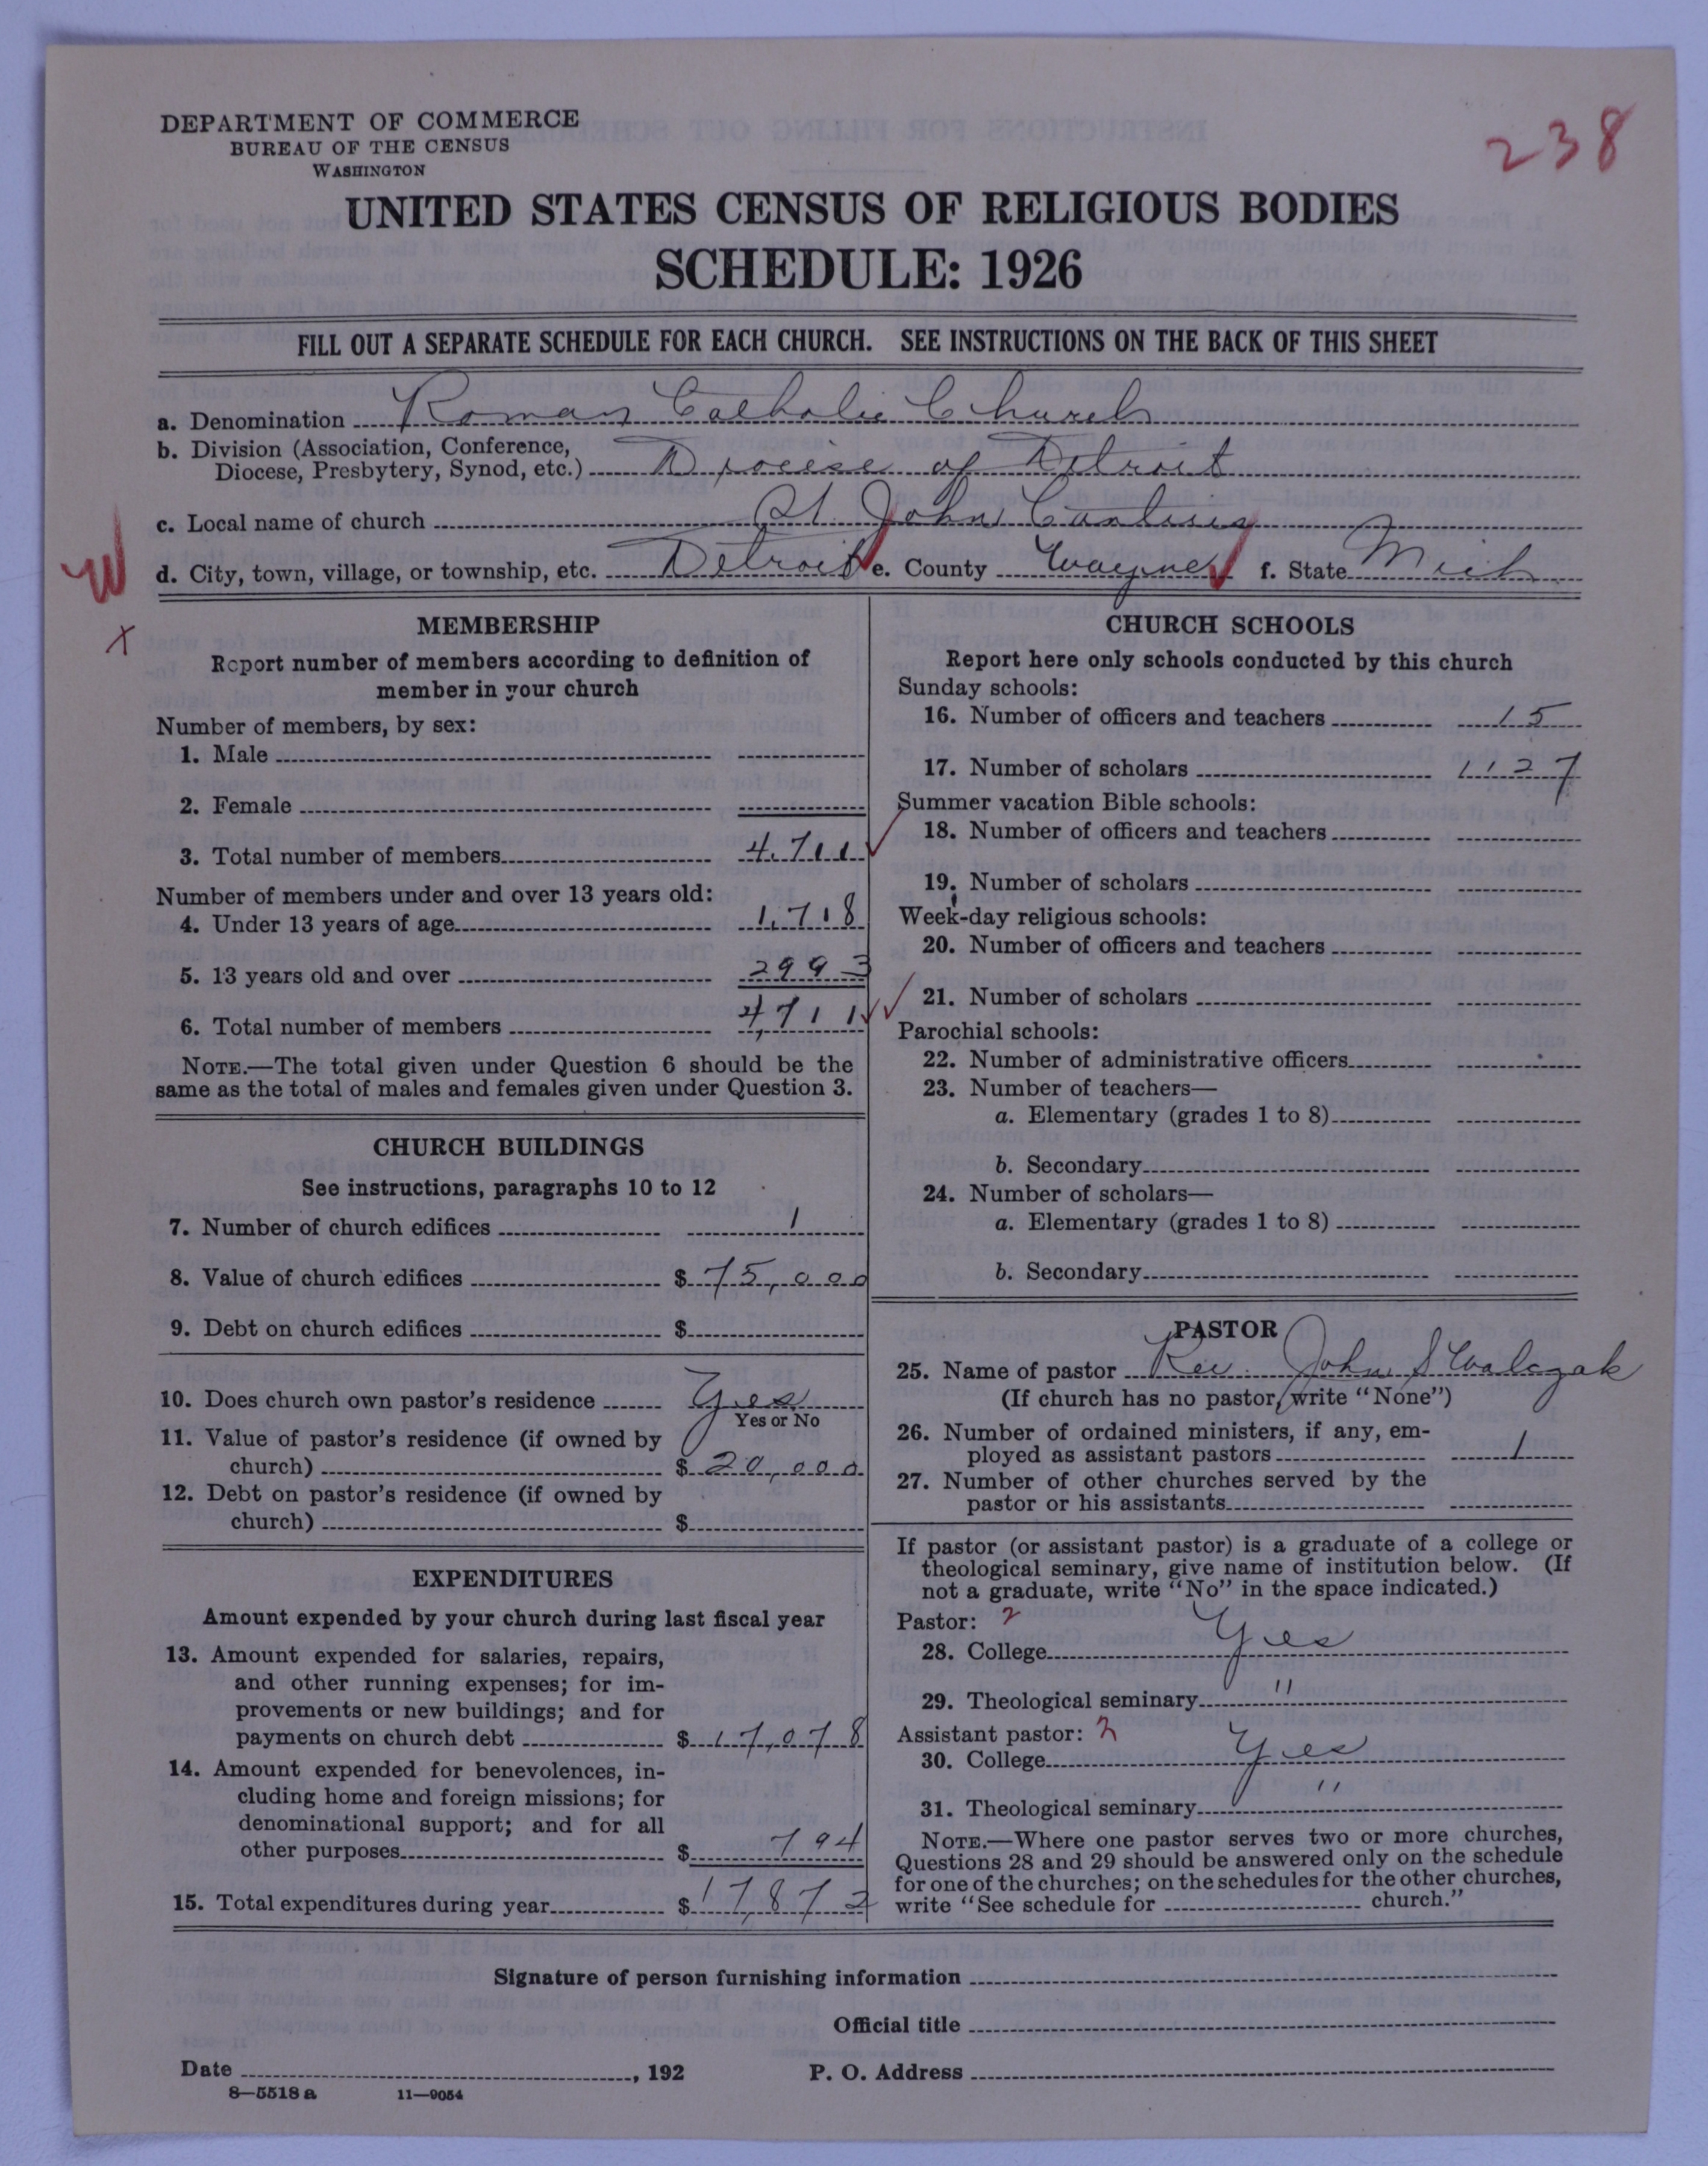 DEPARTMENT OF COMMERCE
BUREAU OF THE CENSUS
WASHINGTON
238
UNITED STATES CENSUS OF RELIGIOUS BODIES
SCHEDULE: 1926
FILL OUT A SEPARATE SCHEDULE FOR EACH CHURCH. SEE INSTRUCTIONS ON THE BACK OF THIS SHEET
a. Denomination Roman Catholic Church
b. Division (Association, Conference,
Diocese, Presbytery, Synod, etc.) Diocese of Detroit
c. Local name of church St. John Cantius
d. City, town, village, or township, etc. Detroit e. County Wayne f. State Mich.
W
x
MEMBERSHIP
Report number of members according to definition of
member in your church
Number of members, by sex:
1. Male
2. Female
3. Total number of members 4,711
Number of members under and over 13 years old:
4. Under 13 years of age 1,718
5. 13 years old and over 2993
6. Total number of members 4,711
NOTE.—The total given under Question 6 should be the
same as the total of males and females given under Question 3.
CHURCH BUILDINGS
See instructions, paragraphs 10 to 12
7. Number of church edifices 1
8. Value of church edifices $ 75,000
9. Debt on church edifices $
10. Does church own pastor's residence Yes
Yes or No
11. Value of pastor's residence (if owned by
church) $ 20,000
12. Debt on pastor's residence (if owned by
church) $
EXPENDITURES
Amount expended by your church during last fiscal year
13. Amount expended for salaries, repairs,
and other running expenses; for im-
provements or new buildings; and for
payments on church debt $ 17,078
14. Amount expended for benevolences, in-
cluding home and foreign missions; for
denominational support; and for all
other purposes $ 794
15. Total expenditures during year $ 17,872
CHURCH SCHOOLS
Report here only schools conducted by this church
Sunday schools:
16. Number of officers and teachers 15
17. Number of scholars 1127
Summer vacation Bible schools:
18. Number of officers and teachers
19. Number of scholars
Week-day religious schools:
20. Number of officers and teachers
21. Number of scholars
Parochial schools:
22. Number of administrative officers
23. Number of teachers—
a. Elementary (grades 1 to 8)
b. Secondary
24. Number of scholars—
a. Elementary (grades 1 to 8)
b. Secondary
PASTOR
25. Name of pastor Rev. John S Walczak
(If church has no pastor, write "None")
26. Number of ordained ministers, if any, em-
ployed as assistant pastors 1
27. Number of other churches served by the
pastor or his assistants
If pastor (or assistant pastor) is a graduate of a college or
theological seminary, give name of institution below. (If
not a graduate, write "No" in the space indicated.)
Pastor: 2
28. College Yes
29. Theological seminary "
Assistant pastor: 2
30. College Yes
31. Theological seminary "
NOTE.—Where one pastor serves two or more churches,
Questions 28 and 29 should be answered only on the schedule
for one of the churches; on the schedules for the other churches,
write "See schedule for church."
Signature of person furnishing information
Official title
Date , 192 P. O. Address
8—5518 a 11—9054